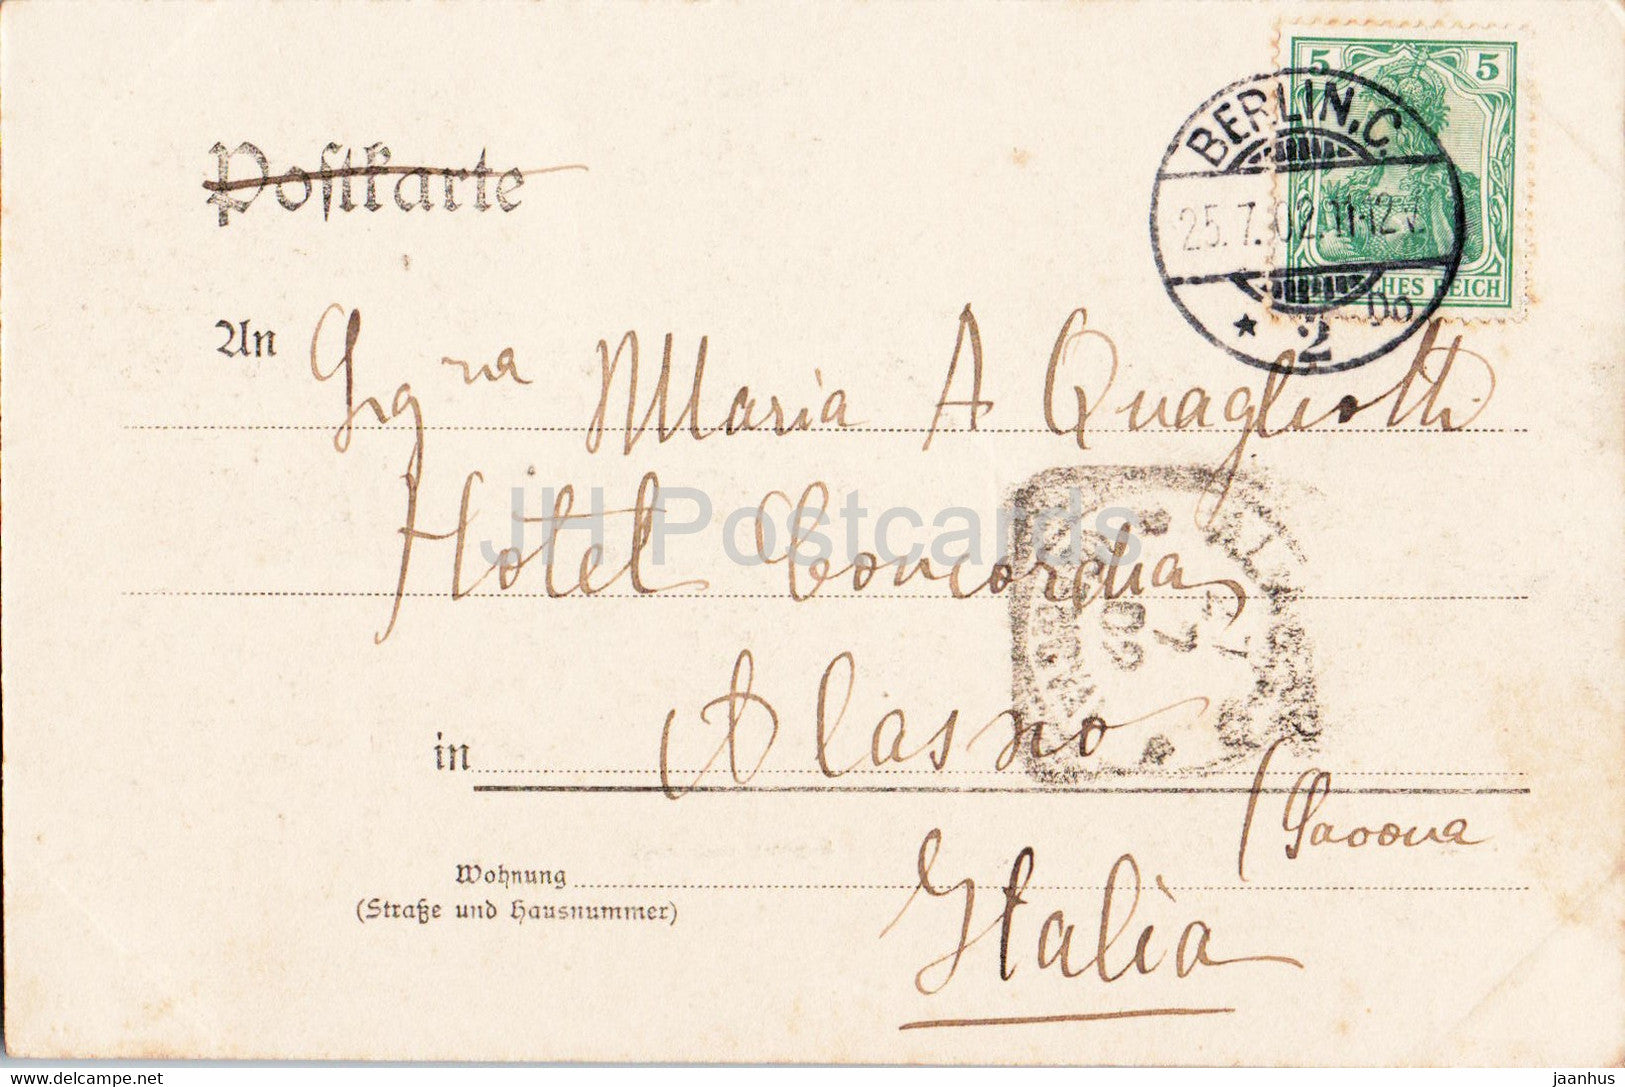 Postkarte
5 5
DEUTSCHES REICH
BERLIN, C.
25.7.02.11-12 V.
* 2 Do
An Sigra Maria A Quagliotti
Hotel Concordia
in Alassio
(Savona
Italia
Wohnung
(Straße und Hausnummer)
27
7
02
JH Postcards
jaanhus @ DELCAMPE